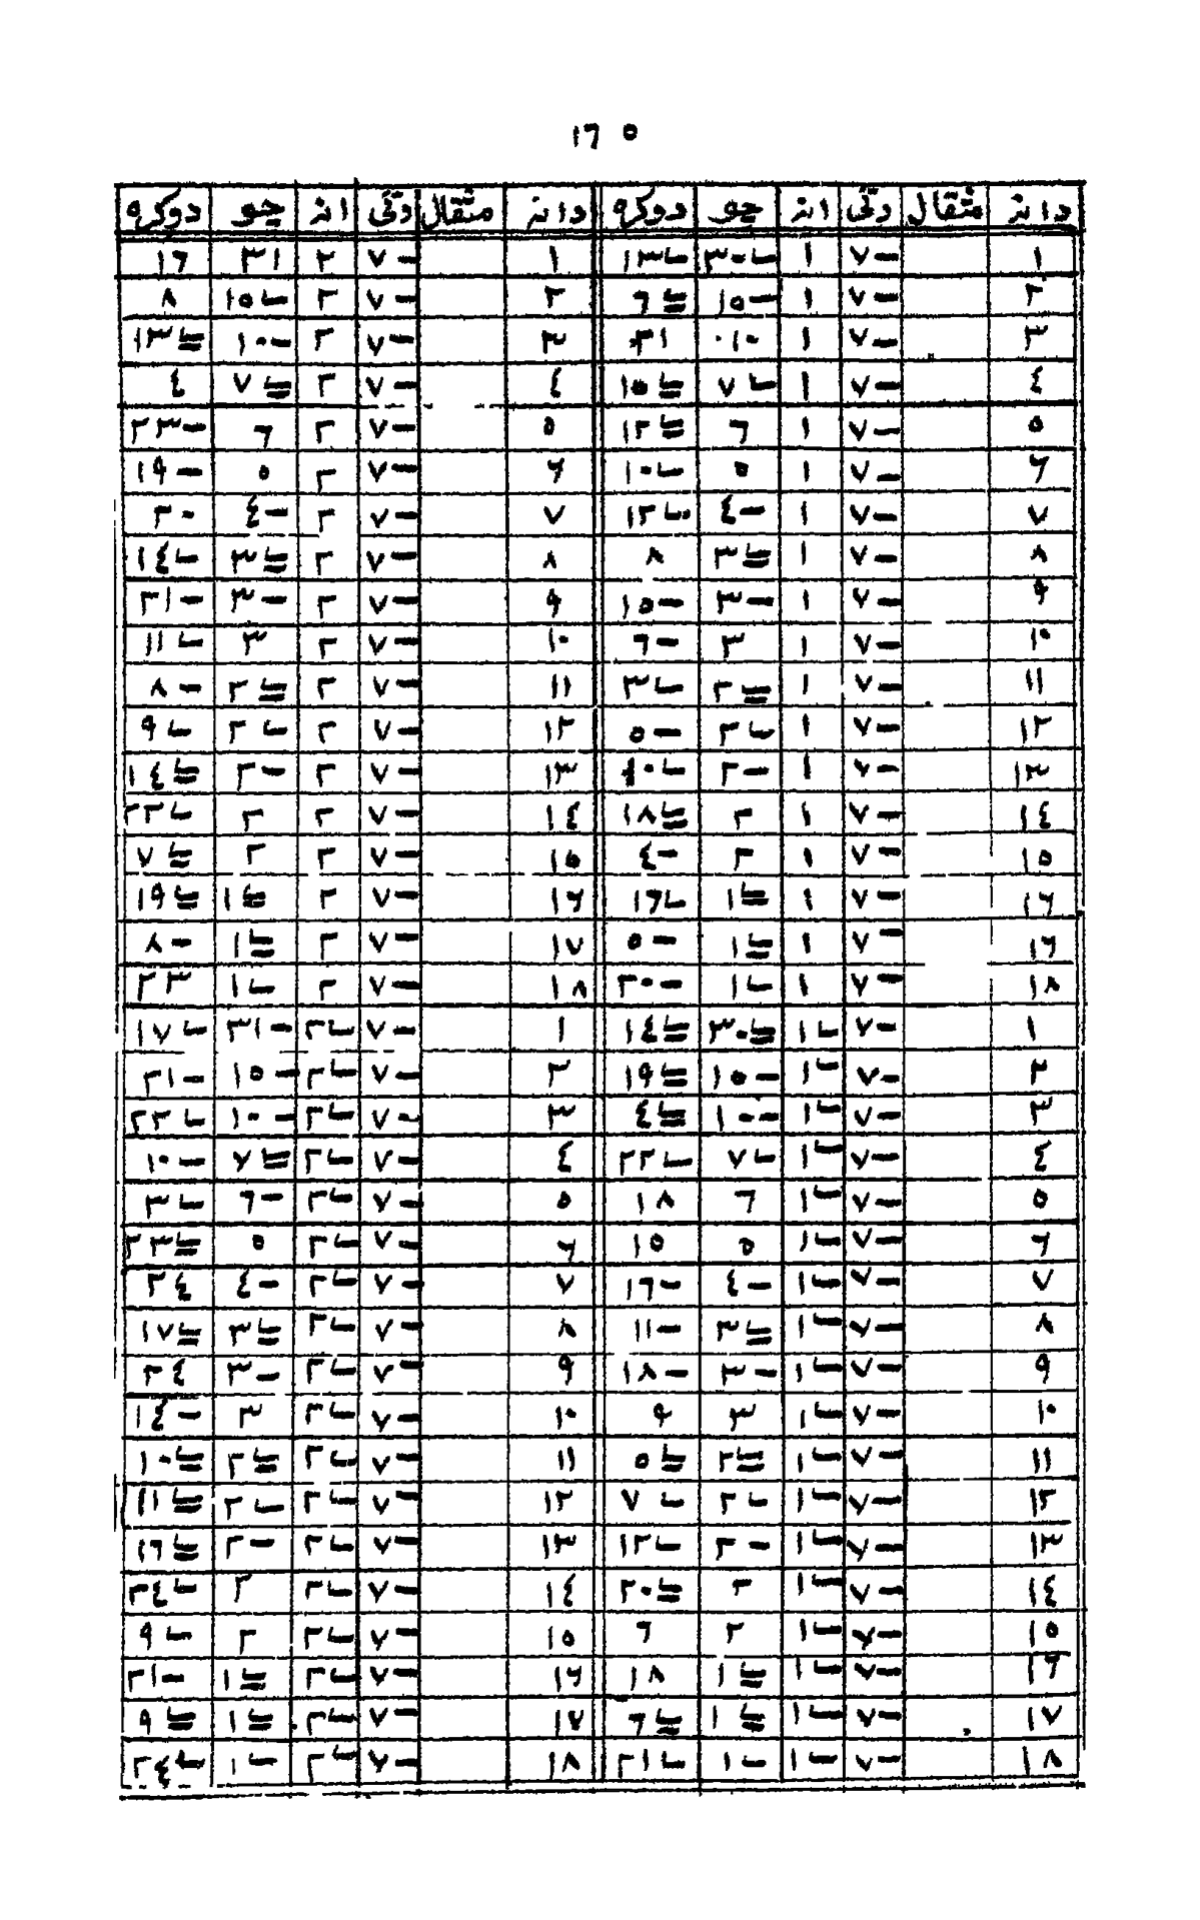 ١٦٥
دانہ مثقال رتی انہ چو دوکرہ دانہ مثقال رتی انہ چو دوکرہ
١ ٧- ١ ٣٠ـا ١٣ـا ١ ٧- ٢ ٣١ ١٦
٢ ٧- ١ ١٥- ٦≡ ٢ ٧- ٢ ١٥ـا ٨
٣ ٧- ١ ١٠ ٢١ ٣ ٧- ٢ ١٠- ١٣≡
٤ ٧- ١ ٧ـا ١٥≡ ٤ ٧- ٢ ٧≡ ٤
٥ ٧- ١ ٦ ١٢≡ ٥ ٧- ٢ ٦ ٢٣-
٦ ٧- ١ ٥ ١٠ـا ٦ ٧- ٢ ٥ ١٩-
٧ ٧- ١ ٤- ١٢ـا ٧ ٧- ٢ ٤- ٢٠
٨ ٧- ١ ٣≡ ٨ ٨ ٧- ٢ ٣≡ ١٤ـا
٩ ٧- ١ ٣- ١٥- ٩ ٧- ٢ ٣- ٢١-
١٠ ٧- ١ ٣ ٦- ١٠ ٧- ٢ ٣ ١١ـا
١١ ٧- ١ ٢≡ ٣ـا ١١ ٧- ٢ ٢≡ ٨-
١٢ ٧- ١ ٢ـا ٥- ١٢ ٧- ٢ ٢ـا ٩ـا
١٣ ٧- ١ ٢- ١٠ـا ١٣ ٧- ٢ ٢- ١٤≡
١٤ ٧- ١ ٢ ١٨≡ ١٤ ٧- ٢ ٢ ٢٢ـا
١٥ ٧- ١ ٢ ٤- ١٥ ٧- ٢ ٢ ٧≡
١٦ ٧- ١ ١≡ ١٦ـا ١٦ ٧- ٢ ١≡ ١٩≡
١٦ ٧- ١ ١≡ ٥- ١٧ ٧- ٢ ١≡ ٨-
١٨ ٧- ١ ١ـا ٢٠- ١٨ ٧- ٢ ١ـا ٢٣
١ ٧- ١ـا ٣٠≡ ١٤≡ ١ ٧- ٢ـا ٣١- ١٧ـا
٢ ٧- ١ـا ١٥- ١٩≡ ٢ ٧- ٢ـا ١٥- ٢١-
٣ ٧- ١ـا ١٠- ٤≡ ٣ ٧- ٢ـا ١٠- ٢٢ـا
٤ ٧- ١ـا ٧ـا ٢٢ـا ٤ ٧- ٢ـا ٧≡ ١٠-
٥ ٧- ١ـا ٦ ١٨ ٥ ٧- ٢ـا ٦- ٣ـا
٦ ٧- ١ـا ٥ ١٥ ٦ ٧- ٢ـا ٥ ٢٣≡
٧ ٧- ١ـا ٤- ١٦- ٧ ٧- ٢ـا ٤- ٢٤
٨ ٧- ١ـا ٣≡ ١١- ٨ ٧- ٢ـا ٣≡ ١٧≡
٩ ٧- ١ـا ٣- ١٨- ٩ ٧- ٢ـا ٣- ٢٤
١٠ ٧- ١ـا ٣ ٩ ١٠ ٧- ٢ـا ٣ ١٤-
١١ ٧- ١ـا ٢≡ ٥≡ ١١ ٧- ٢ـا ٢≡ ١٠≡
١٢ ٧- ١ـا ٢ـا ٧ـا ١٢ ٧- ٢ـا ٢ـا ١١≡
١٣ ٧- ١ـا ٢- ١٢ـا ١٣ ٧- ٢ـا ٢- ١٦≡
١٤ ٧- ١ـا ٢ ٢٠≡ ١٤ ٧- ٢ـا ٢ ٢٤ـا
١٥ ٧- ١ـا ٢ ٦ ١٥ ٧- ٢ـا ٢ ٩ـا
١٦ ٧- ١ـا ١≡ ١٨ ١٦ ٧- ٢ـا ١≡ ٢١-
١٧ ٧- ١ـا ١≡ ٦≡ ١٧ ٧- ٢ـا ١≡ ٩≡
١٨ ٧- ١ـا ١ـا ٢١ـا ١٨ ٧- ٢ـا ١ـا ٢٤ـا